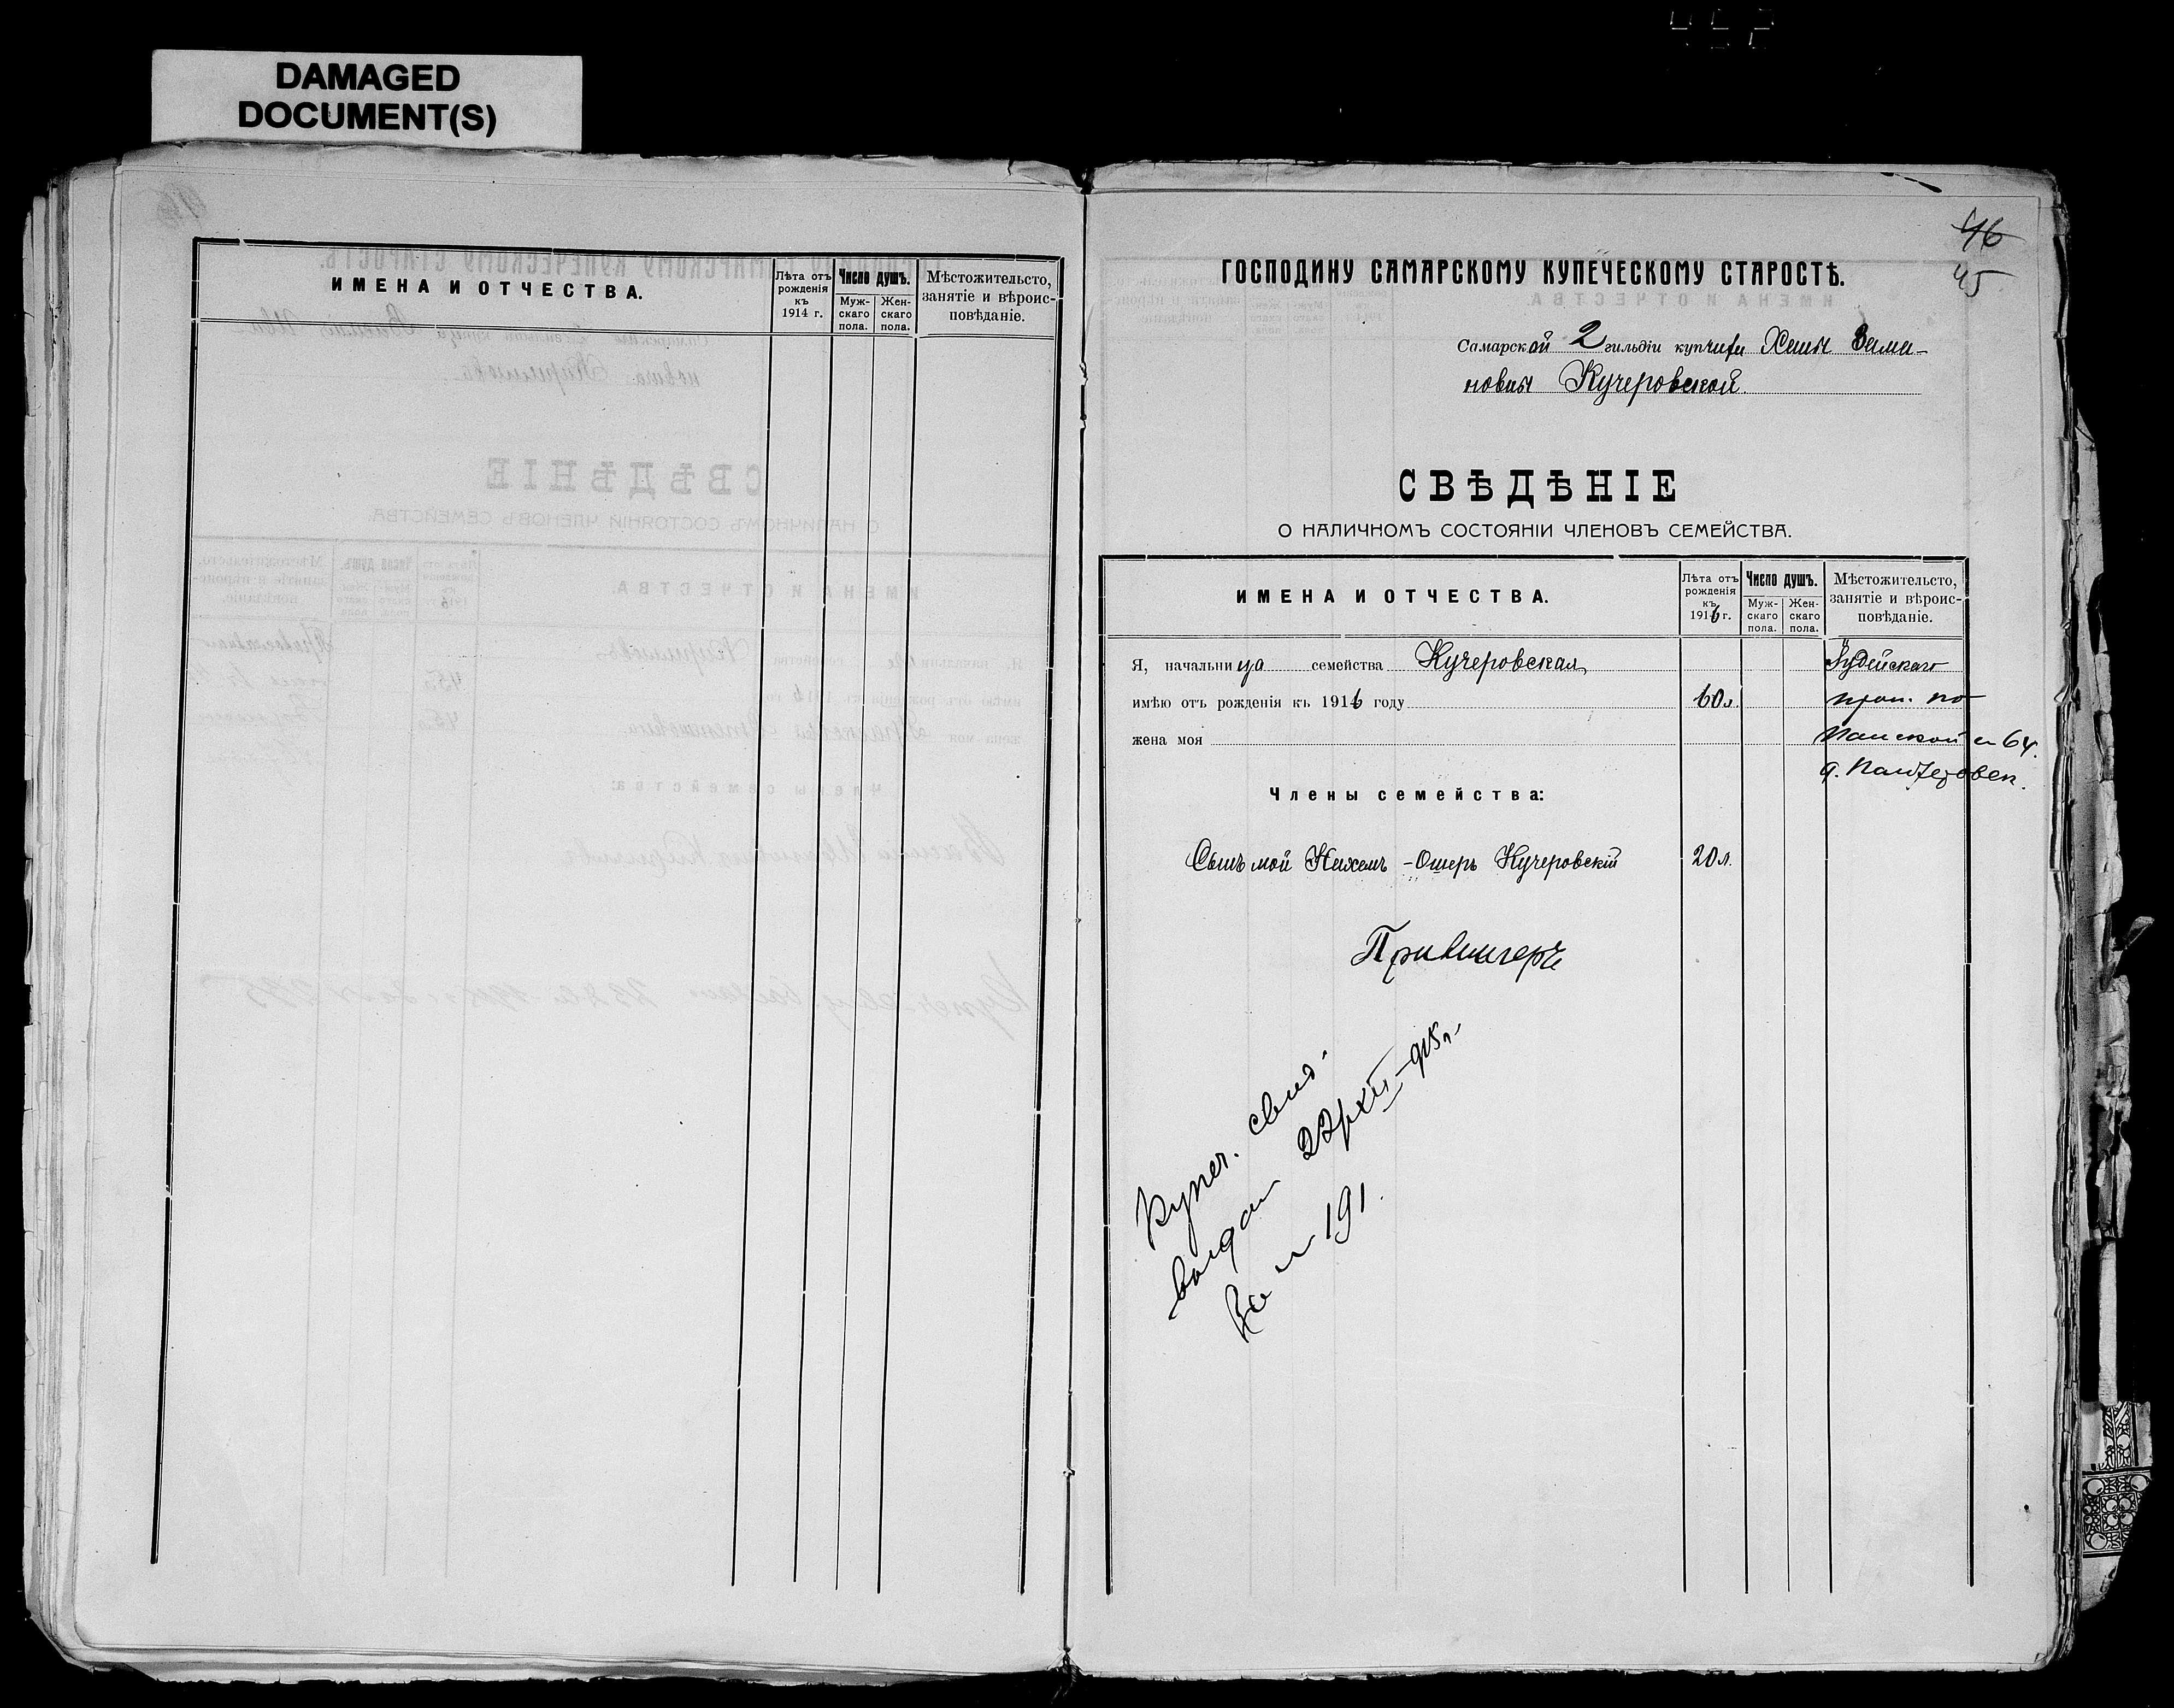 DAMAGED
DOCUMENT(S)
ИМЕНА И ОТЧЕСТВА.
Лѣта отъ
рожденія
къ
1914 г.
Число душъ.
Муж-
скаго
пола.
Жен-
скаго
пола.
Мѣстожительсто,
занятіе и вѣроис-
повѣданіе.
46
45
ГОСПОДИНУ САМАРСКОМУ КУПЕЧЕСКОМУ СТАРОСТѢ.
Самарской 2 гильдіи купчихи Хаи
Кучеровской.
СВѢДѢНІЕ
О НАЛИЧНОМЪ СОСТОЯНІИ ЧЛЕНОВЪ СЕМЕЙСТВА.
ИМЕНА И ОТЧЕСТВА.
Лѣта отъ
рожденія
къ
1916 г.
Число душъ.
Муж-
скаго
пола.
Жен-
скаго
пола.
Мѣстожительсто,
занятіе и вѣроис-
повѣданіе.
Я, начальница семейства Кучеровская, Іудейскаго
имѣю отъ рожденія къ 1916 году 60 л. прож. по
жена моя Панской № 64.
д.
Члены семейства:
Сынъ мой Нахемъ-Ошеръ Кучеровскій 20 л.
Купеч. свид.
выдан 22/XII-915 г.
За № 191.